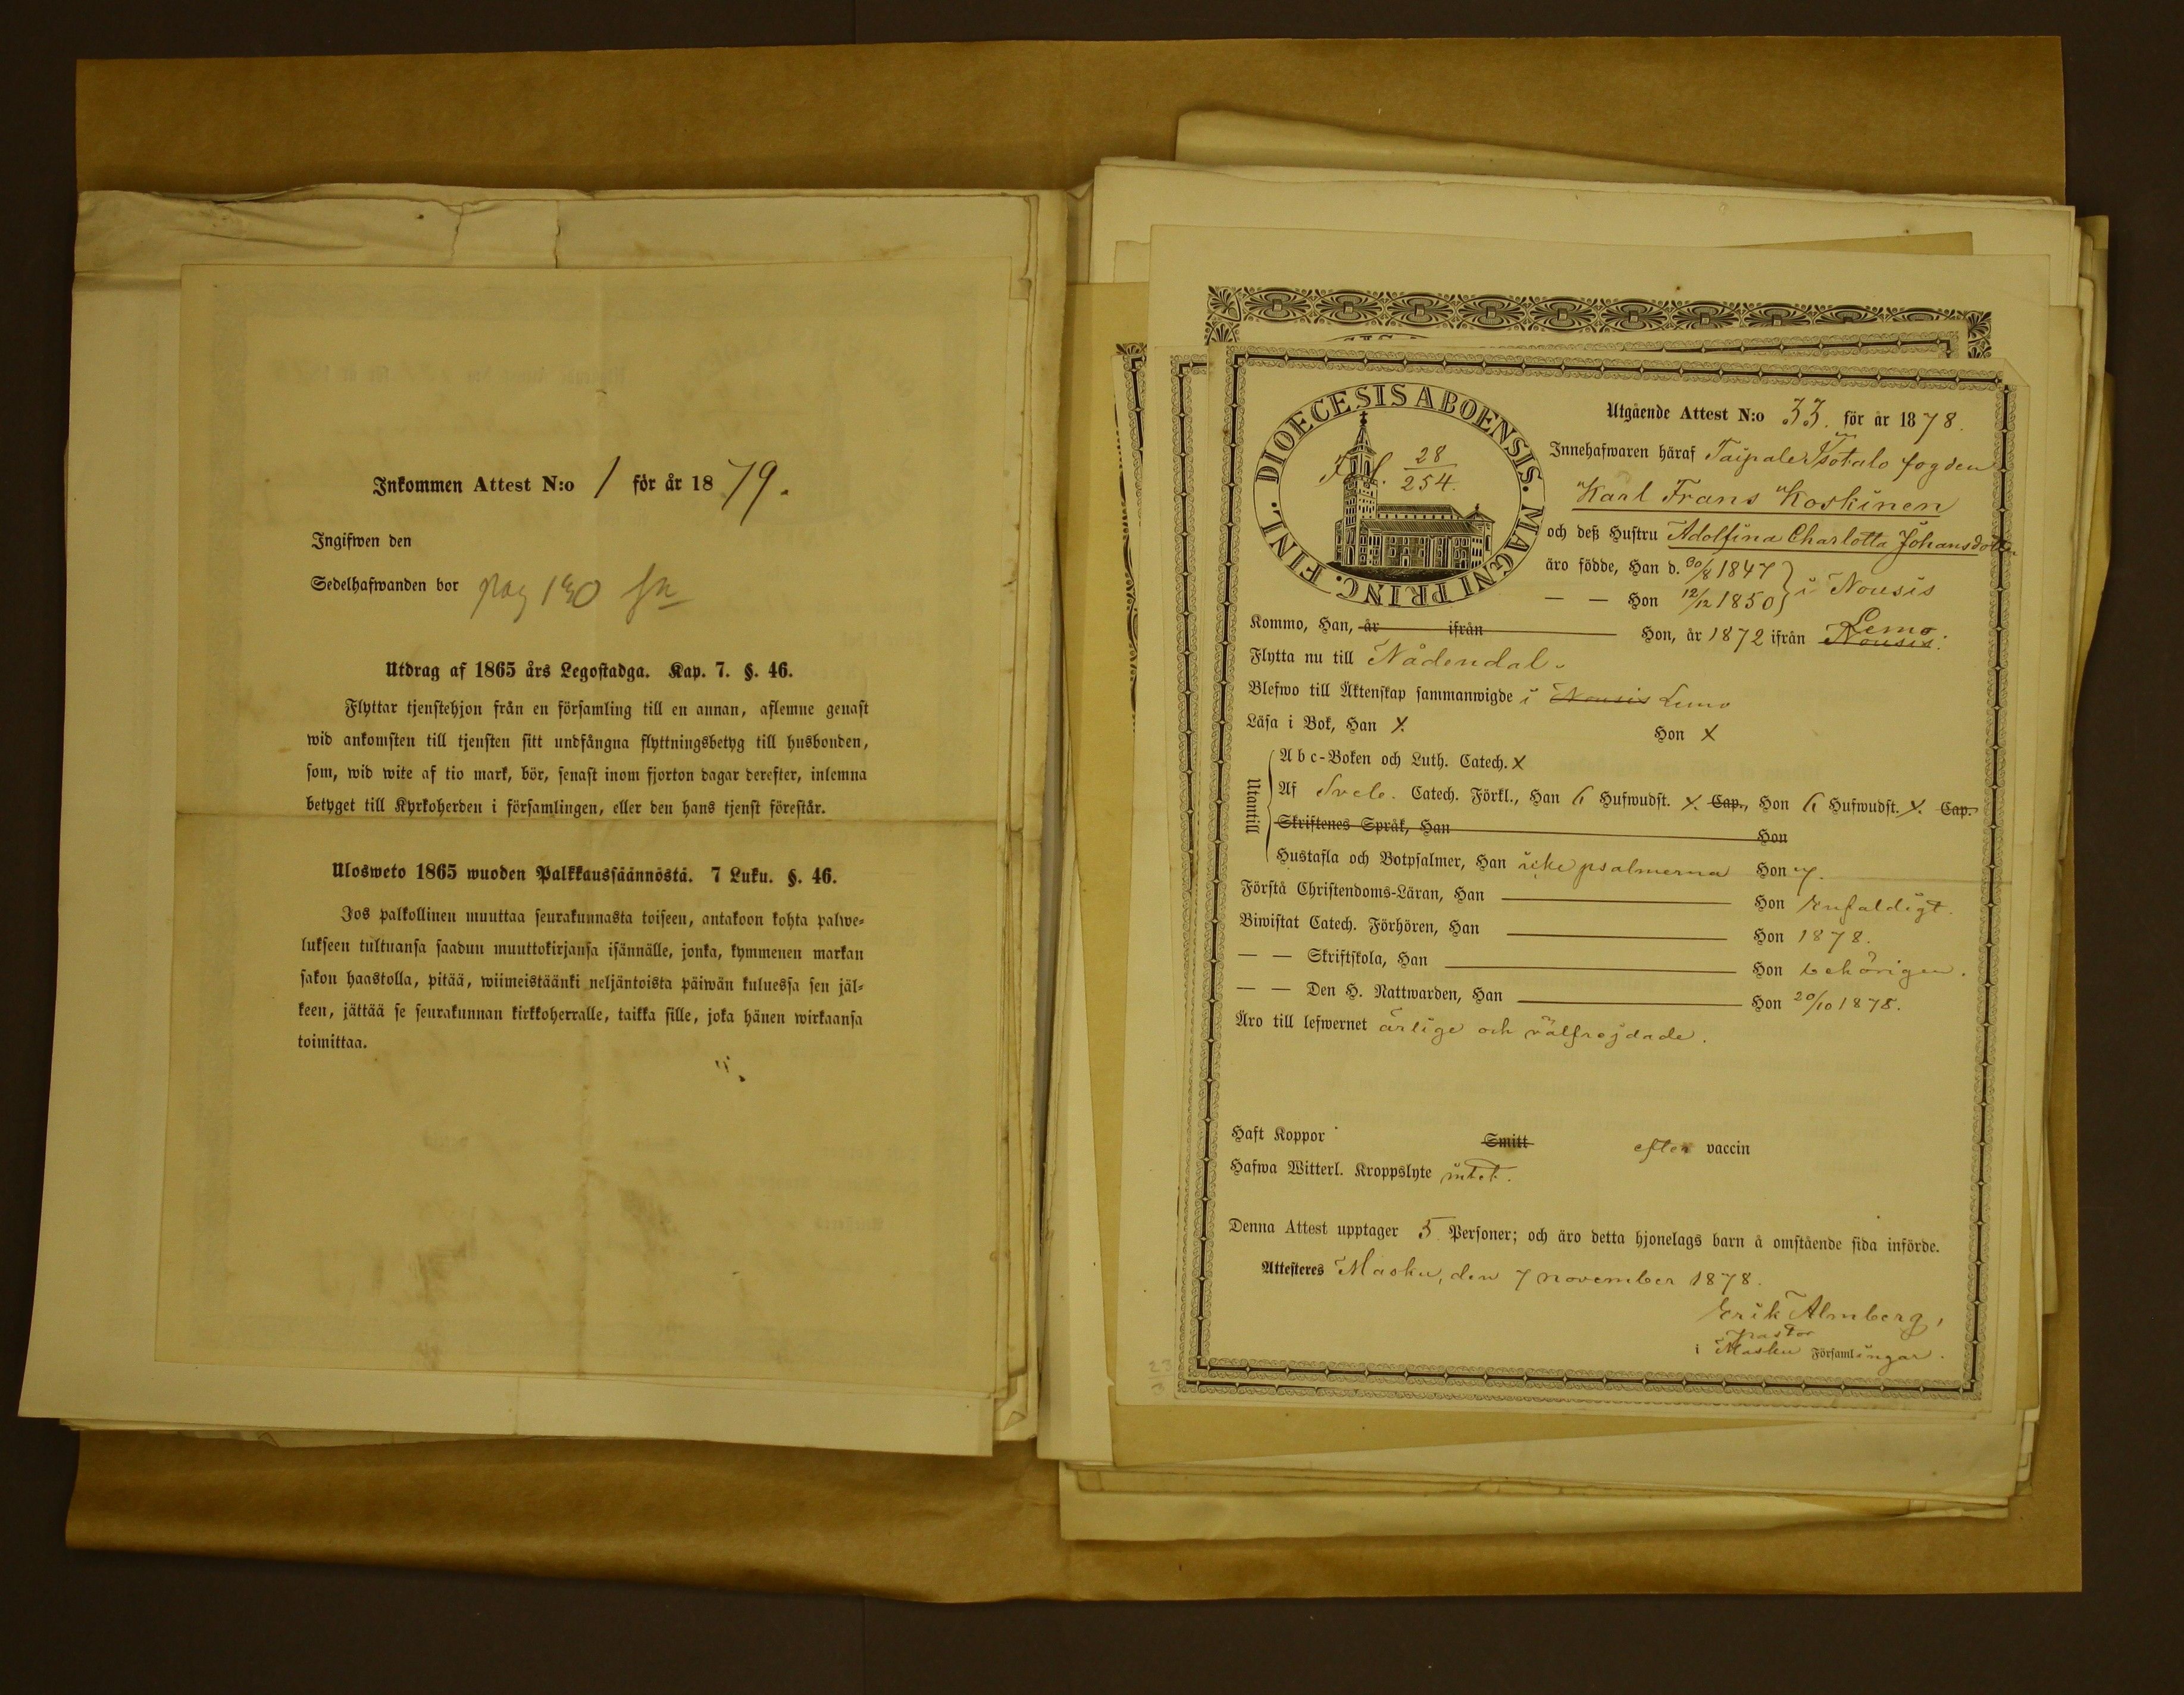 Inkommen Attest N:o 1 för år 1879.
Ingifwen den
Sedelhafwanden bor pag 130
Utdrag af 1865 års Legostadga. Kap. 7. §. 46.
Flyttar tjenstehjon från en församling till en annan, aflemne genast
wid ankomsten till tjensten sitt undfångna flyttningsbetyg till husbonden,
som, wid wite af tio mark, bör, senast inom fjorton dagar derefter, inlemna
betyget till Kyrkoherden i församlingen, eller den hans tjenst förestår.
Ulosweto 1865 wuoden Palkkaussäännöstä. 7 Luku. §. 46.
Jos palkollinen muuttaa seurakunnasta toiseen, antakoon kohta palwe-
lukseen tultuansa saadun muuttokirjansa isännälle, jonka, kymmenen markan
sakon haastolla, pitää, wiimeistäänki neljäntoista päiwän kuluessa sen jäl-
keen, jättää se seurakunnan kirkkoherralle, taikka sille, joka hänen wirkaansa
toimittaa.
DIOECESIS ABOENSIS. MAGNI PRINC. FINL.
Fol. 28/254.
Utgående Attest N:o 33. för år 1878.
Innehafwaren häraf Taipale Isotalo fogden
Karl Frans Koskinen
och deß Hustru Adolfina Charlotta Johansdotter
äro födde, Han d. 30/8 1847 } i Nousis
— — Hon 12/12 1850
Kommo, Han, år ifrån Hon, år 1872 ifrån Nousis Lemo.
Flytta nu till Nådendal.
Blefwo till Äktenskap sammanwigde i Nousis Lemo
Läsa i Bok, Han X. Hon X
Utantill
Abc-Boken och Luth. Catech. X
Af Sveb. Catech. Förkl., Han 6 Hufwudst. X. Cap., Hon 6 Hufwudst. X. Cap.
Skriftenes Språk, Han Hon
Hustafla och Botpsalmer, Han icke psalmerna Hon
Förstå Christendoms-Läran, Han — Hon Enfaldigt.
Biwistat Catech. Förhören, Han — Hon 1878.
— — Skriftskola, Han — Hon behörigen.
— — Den H. Nattwarden, Han — Hon 20/10 1878.
Äro till lefwernet ärlige och välfrejdade.
Haft Koppor Smitt efter vaccin
Hafwa Witterl. Kroppslyte intet.
Denna Attest upptager 5 Personer; och äro detta hjonelags barn å omstående sida införde.
Attesteres Masku, den 7 november 1878.
Erik Almberg,
Pastor
i Masku Församlingar.